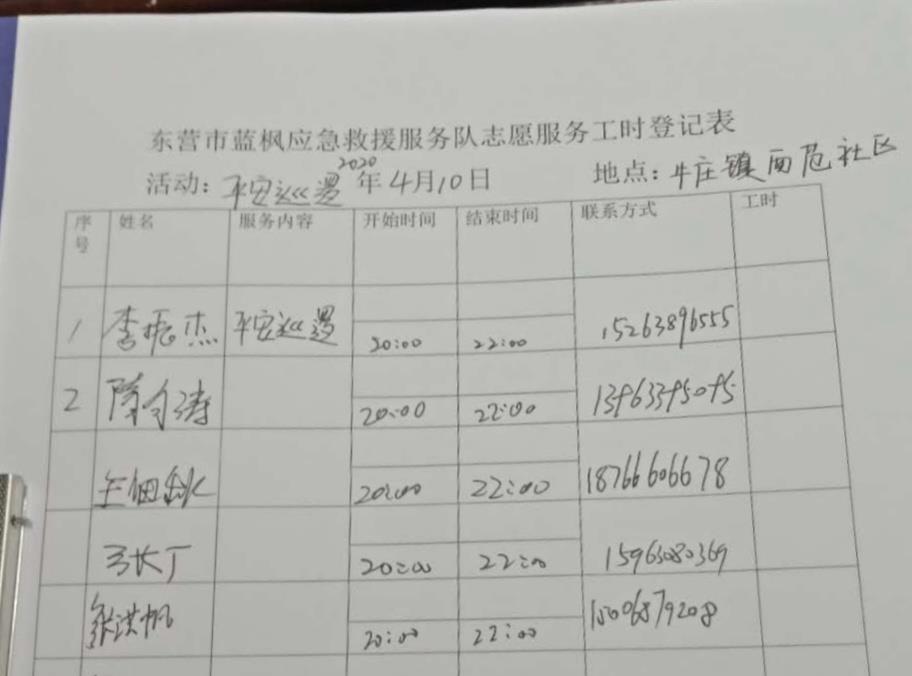 东营市蓝枫应急救援服务队志愿服务工时登记表
活动：平安巡逻 2020年4月10日 地点：牛庄镇西范社区
序号 姓名 服务内容 开始时间 结束时间 联系方式 工时
1 李振杰 平安巡逻 20:00 22:00 15263896555
2 隋 涛 20:00 22:00
20:00 22:00 18766606678
长丁 20:00 22:00 15963080369
张洪帆 20:00 22:00 15006879208